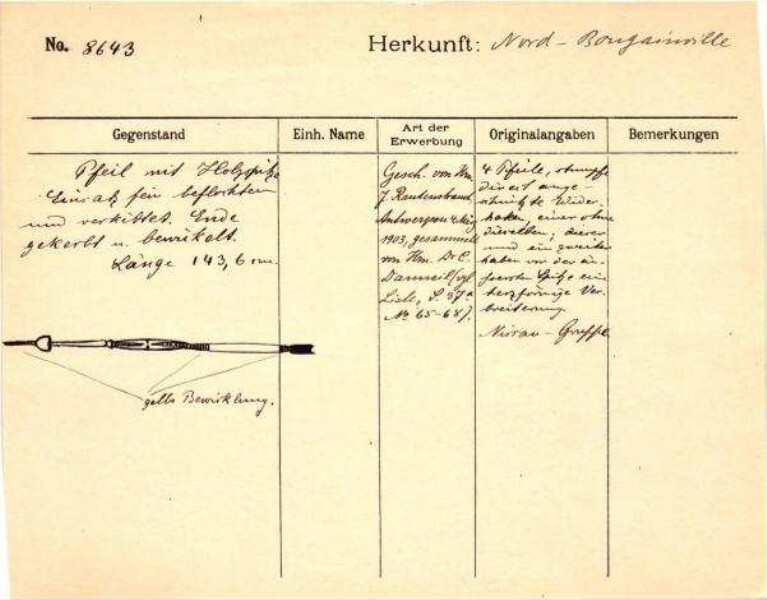 No. 8643
Herkunft: Nord-Bougainville
Gegenstand
Einh. Name
Art der Erwerbung
Originalangaben
Bemerkungen
Pfeil mit Holzspitze
Einsatz fein beflochten
und verkittet. Ende
gekerbt u. bewickelt.
Länge 143,6 cm.
gelbe Bewicklung.
Gesch. von Hrn.
J. Rautenstrauch,
Antwerpen
1903, gesammelt
von Hrn. Dr. C.
Danneil (vgl.
Liste, S. 37a
No 65-68).
4 Pfeile, stumpfe
direct ange-
schnitzte Wider-
haken, einer ohne
dieselben, dieser
und ein zweiter
haben vor der äu-
ssersten Spitze eine
herzförmige Ver-
breiterung.
Nissan-Gruppe